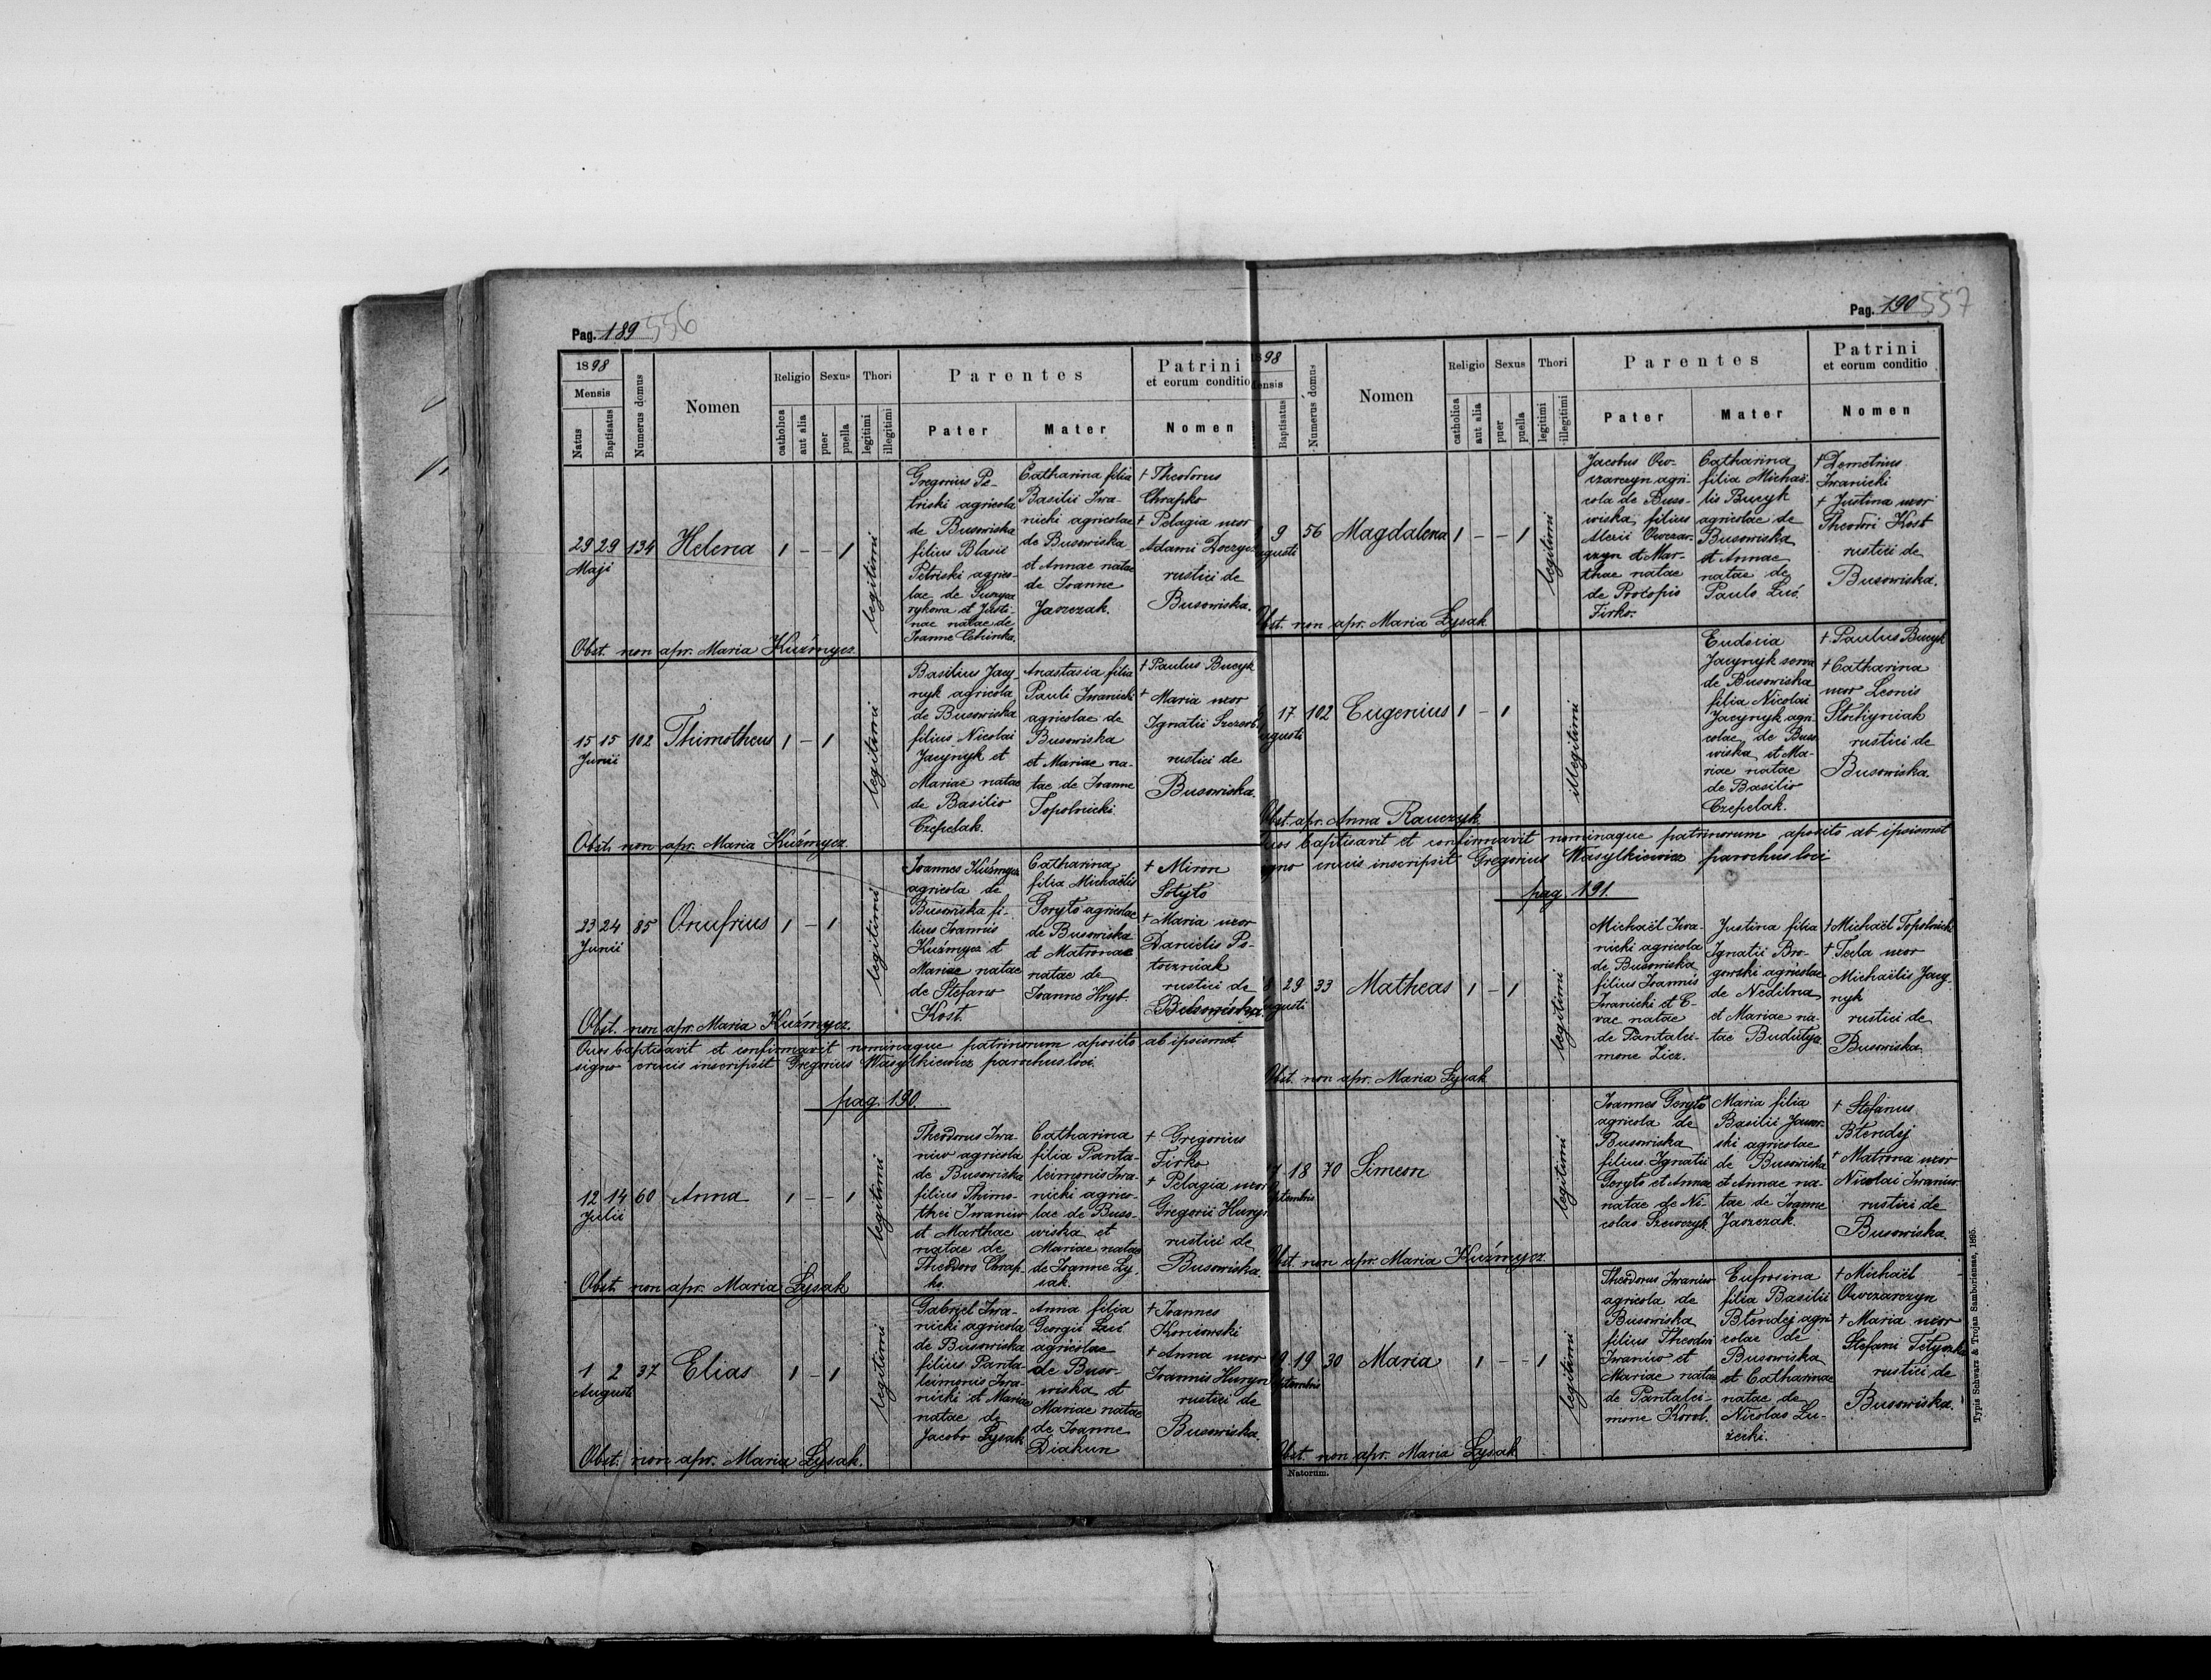 Pag. 189 556
1898
Mensis
Natus
Baptisatus
Numerus domus
Nomen
Religio
catholica
aut alia
Sexus
puer
puella
Thori
legitimi
illegitimi
Parentes
Pater
Mater
Patrini
et eorum conditio
Nomen
29 29 134 Helena 1 - - 1 legitimi
Maji
Gregorius Pe-
triski agricola
de Busowiska
filius Blasii
Petriski agrico-
lae de
rykowa et Justi-
nae natae de
Joanne
Catharina filia
Basilii Iwa-
nicki agricolae
de Busowiska
et Annae natae
de Joanne
Jaszczak.
† Theodorus
Chrapko
† Pelagia uxor
Adami
rustici de
Busowiska.
Obst. non apr. Maria Kuźmycz
15 15 102 Thimotheus 1 - 1 legitimi
Junii
Basilius Jacy-
nyk agricola
de Busowiska
filius Nicolai
Jacynyk et
Mariae natae
de Basilio
Czepelak.
Anastasia filia
Pauli Iwanicki
agricolae de
Busowiska
et Mariae na-
tae de Joanne
Topolnicki
† Paulus Bucyk
† Maria uxor
Ignatii
rustici de
Busowiska.
Obst. non apr. Maria Kuźmycz.
23 24 85 Onufrius 1 - 1 legitimi
Junii
Joannes Kuźmycz
agricola de
Busowiska fi-
lius Joannis
Kuźmycz et
Mariae natae
de Stefano
Kost.
Catharina
filia Michaëlis
Goryto agricolae
de Busowiska
et Matronae
natae de
Joanne Hryb.
† Miron
† Maria uxor
Danielis Po-
toczniak
rustici de
Busowiska.
Obst. non apr. Maria Kuźmycz.
Quos baptisavit et confirmavit nominaque patrinorum aposito ab ipsismet
signo crucis inscripsit Gregorius Wasylkiewicz parochus loci.
pag. 190.
12 14 60 Anna 1 - - 1 legitimi
Julii
Theodorus Iwa-
niw agricola
de Busowiska
filius Thimo-
thei Iwaniw
et Marthae
natae de
Theodoro Chrap-
ko.
Catharina
filia Panta-
leimonis Iwa-
nicki agrico-
lae de Buso-
wiska et
Mariae natae
de Joanne Ły-
sak.
† Gregorius
Firko
† Pelagia uxor
Gregorii Huryn
rustici de
Busowiska.
Obst. non apr. Maria Łysak
1 2 37 Elias 1 - 1 legitimi
Augusti
Gabriel Iwa-
nicki agricola
de Busowiska
filius Panta-
leimonis Iwa-
nicki et Mariae
natae de
Jacobo Łysak
Anna filia
Georgii Luś
agricolae
de Buso-
wiska et
Mariae natae
de Joanne
Diakun
† Joannes
Koniowski
† Anna uxor
Joannis Huryn
rustici de
Busowiska.
Obst. non apr. Maria Łysak.
Pag. 190 557
1898
Mensis
Baptisatus
Numerus domus
Nomen
Religio
catholica
aut alia
Sexus
puer
puella
Thori
legitimi
illegitimi
Parentes
Pater
Mater
Patrini
et eorum conditio
Nomen
9 56 Magdalena 1 - - 1 legitimi
Augusti
Jacobus Ow-
czarczyn agri-
cola de Buso-
wiska, filius
Alexii Owczar-
czyn et Mar-
thae natae
de Procopio
Firko.
Catharina
filia Michaë-
lis Bucyk
agricolae de
Busowiska
et Annae
natae de
Paulo Luś.
† Demetrius
Iwanicki
† Justina uxor
Theodori Kost
rustici de
Busowiska.
Obst. non apr. Maria Łysak
17 102 Eugenius 1 - 1 illegitimi
Augusti
Eudocia
Jacynyk serva
de Busowiska
filia Nicolai
Jacynyk agri-
colae de Buso-
wiska et Ma-
riae natae
de Basilio
Czepelak.
† Paulus Bucyk
† Catharina
uxor Leonis
Stochyniak
rustici de
Busowiska.
Obst. apr. Anna Rawczyk
Quos baptisavit et confirmavit nominaque patrinorum aposito ab ipsismet
signo crucis inscripsit Gregorius Wasylkiewicz parochus loci
pag. 191.
29 33 Matheas 1 - 1 legitimi
Augusti
Michaël Iwa-
nicki agricola
de Busowiska
filius Joannis
Iwanicki et E-
vae natae
de Pantalei-
mone Zicz.
Justina filia
Ignatii Bro-
gowski agricolae
de Nedilna
et Mariae na-
tae Budutya
† Michaël Topolnicki
† Tecla uxor
Michaëlis Jacy-
nyk
rustici de
Busowiska.
Obst. non apr. Maria Łysak
18 70 Simeon legitimi
Septembris
Joannes Goryto
agricola de
Busowiska
filius Ignatii
Goryto et Annae
natae de Ni-
colao Szewczyk
Maria filia
Basilii Jawor-
ski agricolae
de Busowiska
et Annae na-
tae de Joanne
Jaszczak.
† Stefanus
Btendej
† Matrona uxor
Nicolai Iwaniw
rustici de
Busowiska.
Obst. non apr. Maria Kuźmycz.
19 19 30 Maria 1 - - 1 legitimi
Septembris
Theodorus Iwaniw
agricola de
Busowiska
filius Theodori
Iwaniw et
Mariae natae
de Pantalei-
mone Korol.
Eufrosina
filia Basilii
Btendej agri-
colae de
Busowiska
et Catharinae
natae de
Nicolao Lu-
żecki.
† Michaël
Owczarczyn
† Maria uxor
Stefani
rustici de
Busowiska.
Obst. non apr. Maria Łysak
Natorum.
Typis Schwarz & Trojan Samborienses, 1895.